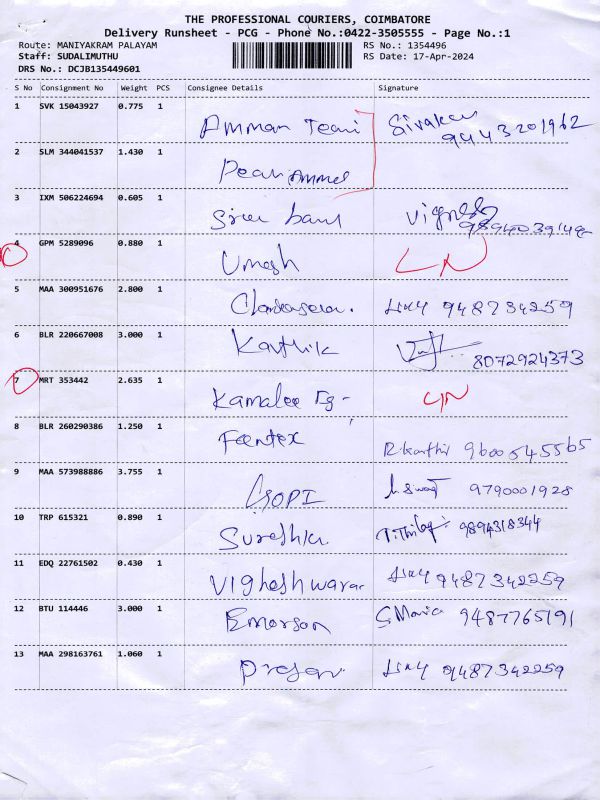 THE PROFESSIONAL COURIERS, COIMBATORE
Delivery Runsheet - PCG - Phone No.:0422-3505555 - Page No.:1
Route: MANIYAKRAM PALAYAM RS No.: 1354496
Staff: SUDALIMUTHU RS Date: 17-Apr-2024
DRS No.: DCJB135449601
S No Consignment No Weight PCS Consignee Details Signature
1 SVK 15043927 0.775 1 Amman Team Sivakar 9443201962
2 SLM 344041537 1.430 1 Pearl Ammal
3 IXM 506224694 0.605 1 Sree Vignesh
4 GPM 5289096 0.880 1 Umesh
5 MAA 300951676 2.800 1 9487342259
6 BLR 220667008 3.000 1 Karthik 8072924373
7 MRT 353442 2.635 1 Kamalee
8 BLR 260290386 1.250 1 Feentex R.Karthi 9600545565
9 MAA 573988886 3.755 1 GOPI 9790001928
10 TRP 615321 0.890 1 9894318344
11 EDQ 22761502 0.430 1 Vigheshwarar 9487342259
12 BTU 114446 3.000 1 Emerson S. Maria 9487765191
13 MAA 298163761 1.060 1 9487342259